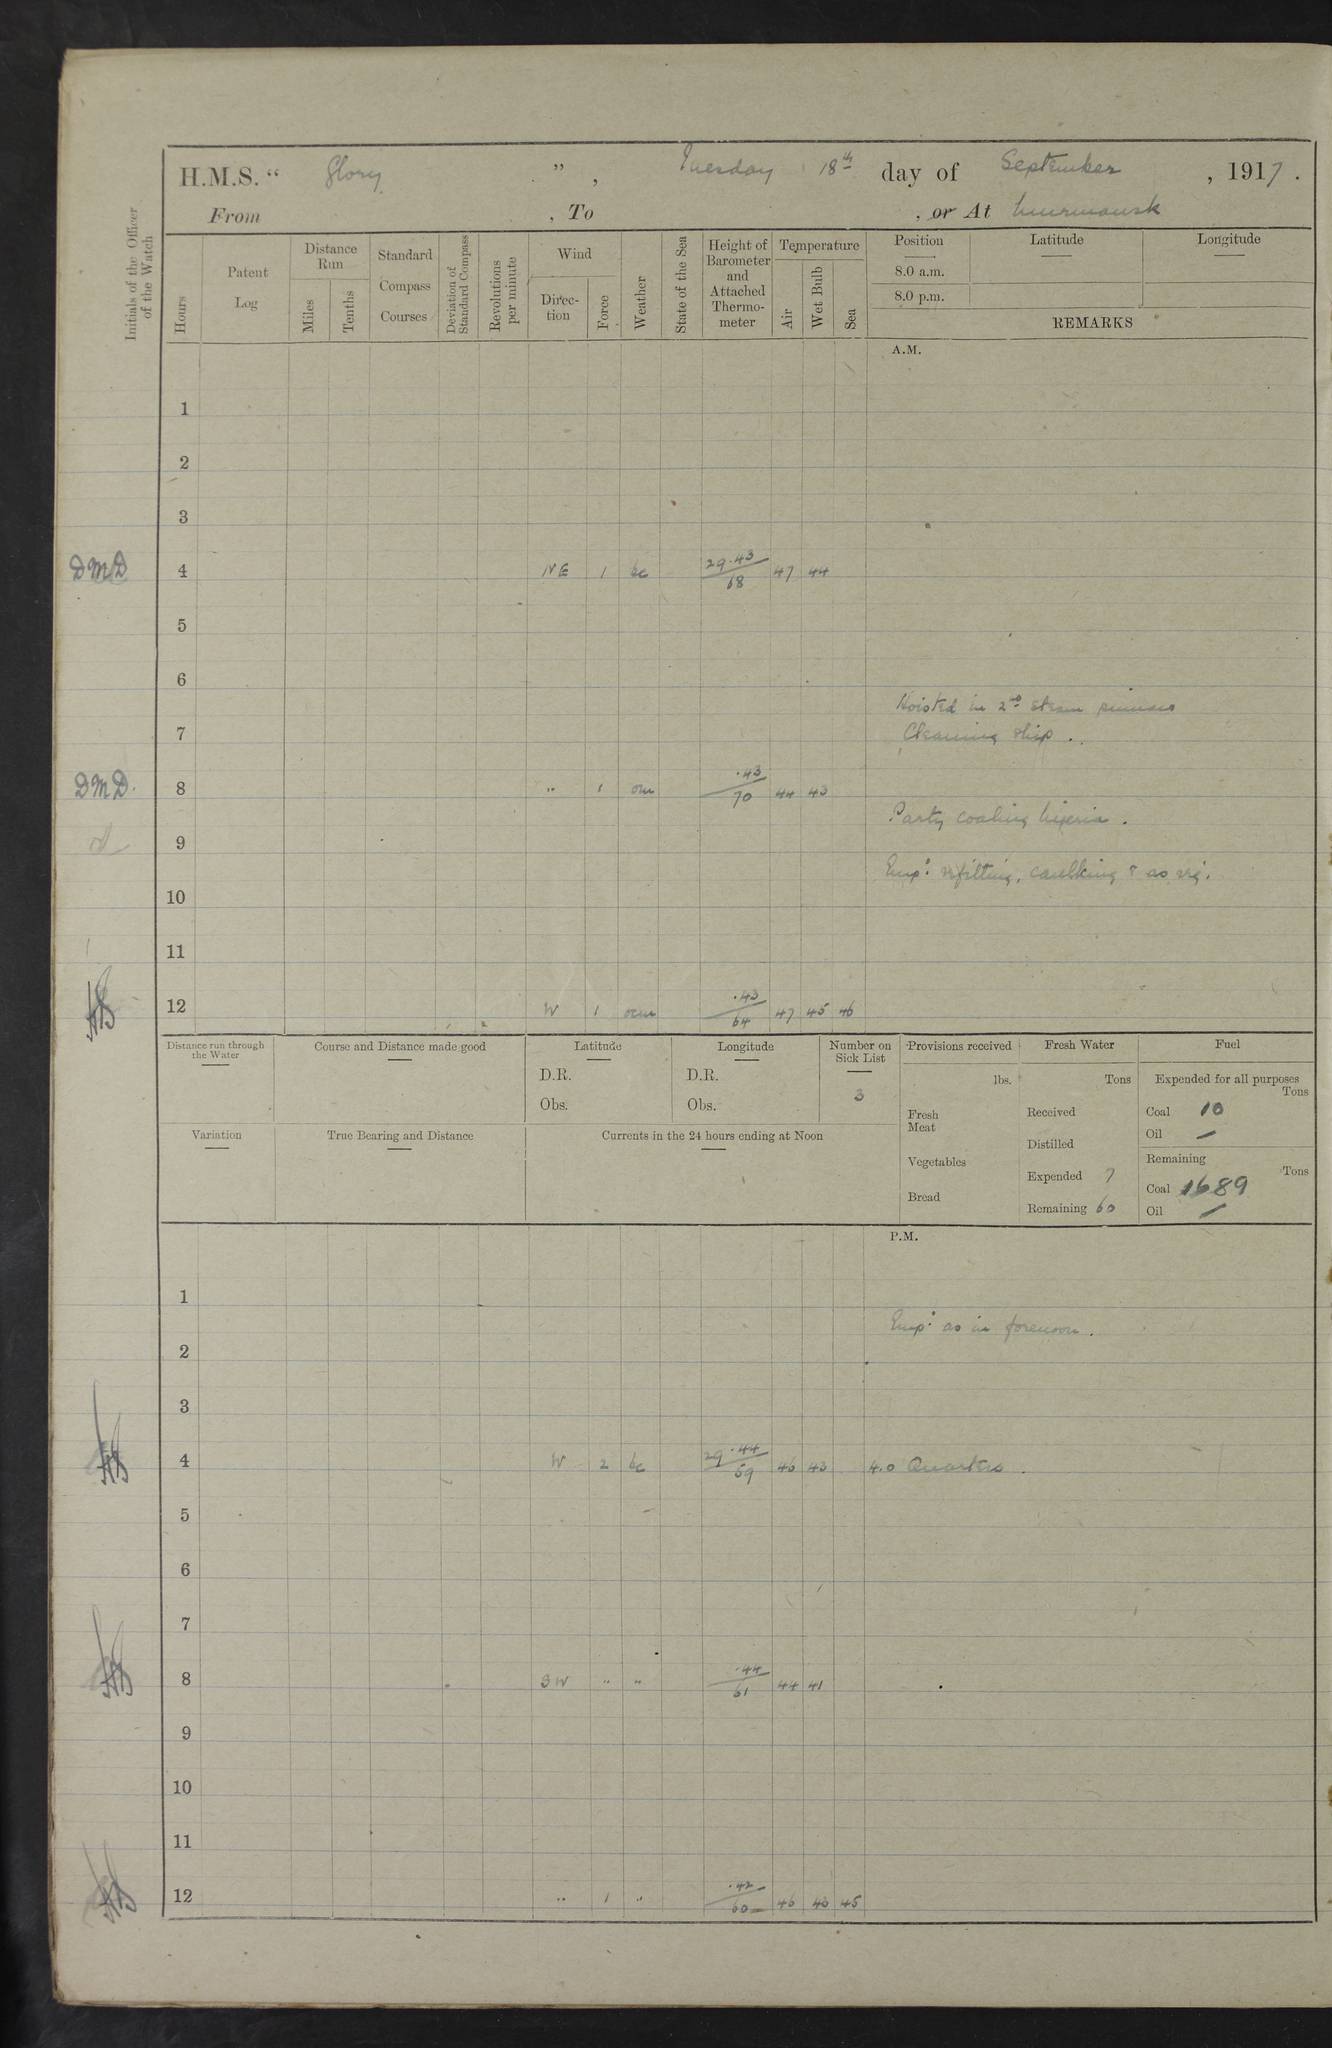 H.M.S. " Glory " , Tuesday 18th day of September , 1917 .
From , To , or At Murmansk
Initials of the Officer of the Watch
Hours
Patent Log
Distance Run
Miles
Tenths
Standard Compass Courses
Deviation of Standard Compass
Revolutions per minute
Wind
Direc-tion
Force
Weather
State of the Sea
Height of Barometer and Attached Thermo-meter
Temperature
Air
Wet Bulb
Sea
Position
Latitude
Longitude
8.0 a.m.
8.0 p.m.
REMARKS
A.M.
1
2
3
DMD 4 NE 1 bc 29.43/68 47 44
5
6
Hoisted in 2nd steam pinnace
7 Cleaning ship.
DMD. 8 " 1 om .43/70 44 43
Party coaling Nigeria.
9
Emp: refitting, caulking & as req.
10
11
12 W 1 ocm .43/64 47 45 46
Distance run through the Water
Course and Distance made good
Latitude
D.R.
Obs.
Longitude
D.R.
Obs.
Number on Sick List
3
Provisions received
lbs.
Fresh Meat
Vegetables
Bread
Fresh Water
Tons
Received
Distilled
Expended 7
Remaining 60
Fuel
Expended for all purposes
Tons
Coal 10
Oil —
Remaining
Tons
Coal 1689
Oil —
Variation
True Bearing and Distance
Currents in the 24 hours ending at Noon
P.M.
1
Emp: as in forenoon.
2
3
4 W 2 bc 29.44/59 46 43 4.0 Quarters.
5
6
7
8 SW " " .44/61 44 41
9
10
11
12 " 1 " .42/60 46 43 45